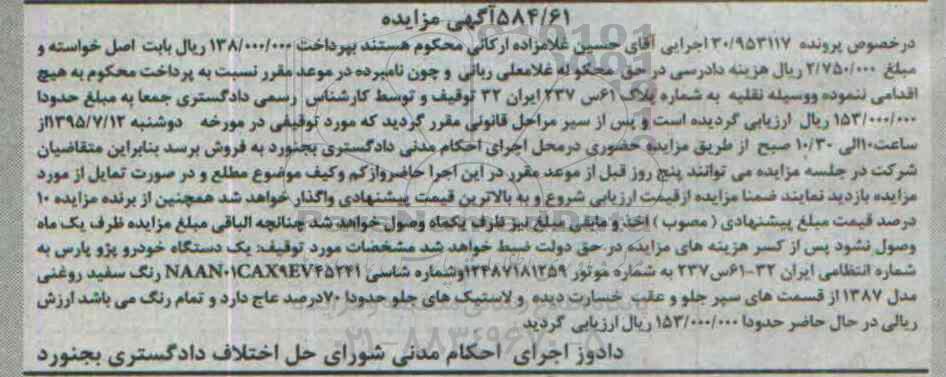 ۵۸۴/۶۱آگهی مزایده
درخصوص پرونده ۳۰/۹۵۳۱۱۷ اجرایی آقای حسین غلامزاده ارکانی محکوم هستند بپرداخت ۱۳۸/۰۰۰/۰۰۰ ریال بابت اصل خواسته و
مبلغ ۲/۷۵۰/۰۰۰ ریال هزینه دادرسی در حق محکو له غلامعلی ربانی و چون نامبرده در موعد مقرر نسبت به پرداخت محکوم به هیچ
اقدامی ننموده ووسیله نقلیه به شماره پلاک ۶۱س ۲۳۷ ایران ۳۲ توقیف و توسط کارشناس رسمی دادگستری جمعا به مبلغ حدودا
۱۵۳/۰۰۰/۰۰۰ ریال ارزیابی گردیده است و پس از سیر مراحل قانونی مقرر گردید که مورد توقیفی در مورخه دوشنبه ۱۳۹۵/۷/۱۲از
ساعت۱۰الی ۱۰/۳۰ صبح از طریق مزایده حضوری درمحل اجرای احکام مدنی دادگستری بجنورد به فروش برسد بنابراین متقاضیان
شرکت در جلسه مزایده می توانند پنج روز قبل از موعد مقرر در این اجرا حاضروازکم وکیف موضوع مطلع و در صورت تمایل از مورد
مزایده بازدید نمایند ضمنا مزایده ازقیمت ارزیابی شروع و به بالاترین قیمت پیشنهادی واگذار خواهد شد همچنین از برنده مزایده ۱۰
درصد قیمت مبلغ پیشنهادی ( مصوب ) اخذ و مابقی مبلغ نیز ظرف یکماه وصول خواهد شد چنانچه الباقی مبلغ مزایده ظرف یک ماه
وصول نشود پس از کسر هزینه های مزایده در حق دولت ضبط خواهد شد مشخصات مورد توقیف: یک دستگاه خودرو پژو پارس به
شماره انتظامی ایران ۳۲-۶۱س۲۳۷ به شماره موتور ۱۲۴۸۷۱۸۱۲۵۹وشماره شاسی NAAN۰۱CAX۹EV۴۵۲۴۱ رنگ سفید روغنی
مدل ۱۳۸۷ از قسمت های سپر جلو و عقب خسارت دیده و لاستیک های جلو حدودا ۷۰درصد عاج دارد و تمام رنگ می باشد ارزش
ریالی در حال حاضر حدودا ۱۵۳/۰۰۰/۰۰۰ ریال ارزیابی گردید
دادورز اجرای احکام مدنی شورای حل اختلاف دادگستری بجنورد